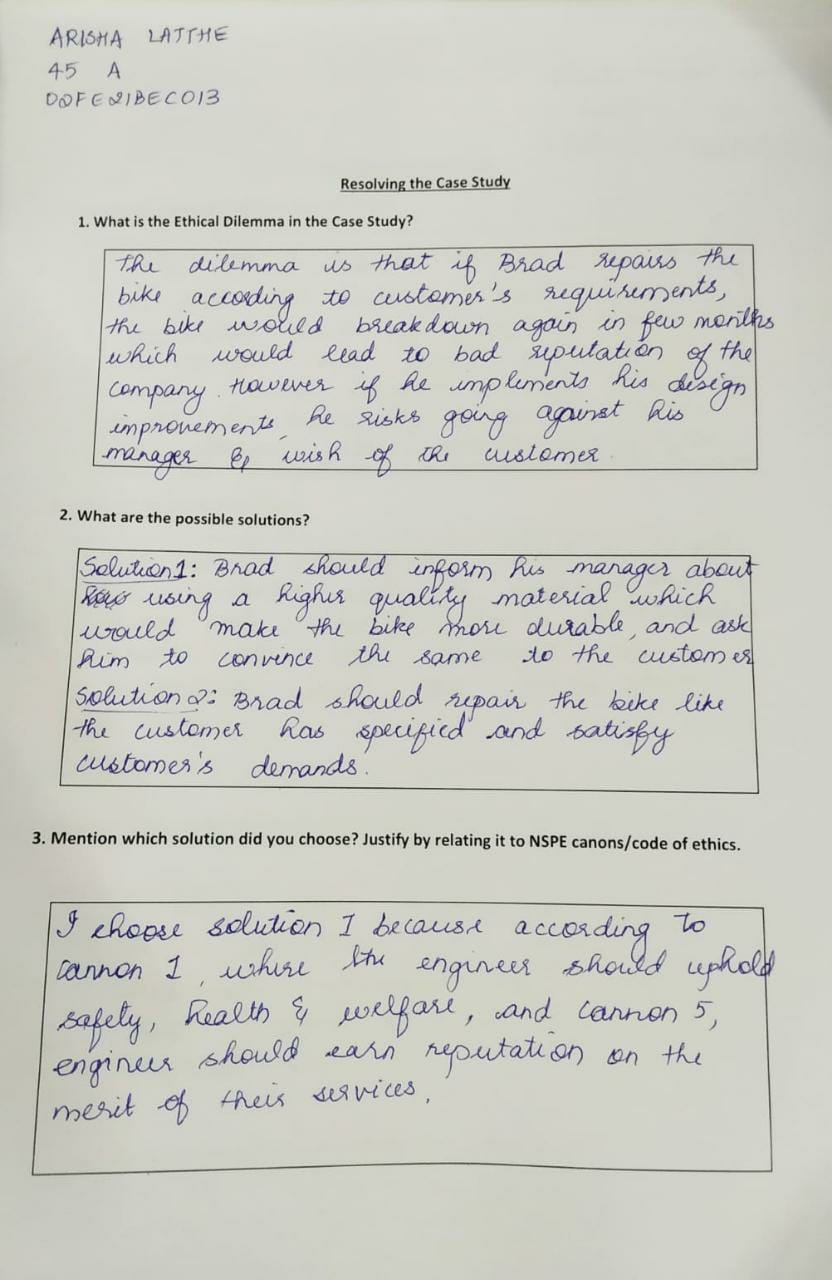 ARISHA LATTHE
45 A
00FE21BEC013
Resolving the Case Study
1. What is the Ethical Dilemma in the Case Study?
The dilemma is that if Brad repairs the
bike according to customer's requirements,
the bike would breakdown again in few months
which would lead to bad reputation of the
company. However if he implements his design
improvements, he risks going against his
manager & wish of the customer.
2. What are the possible solutions?
Solution1: Brad should inform his manager about
using a higher quality material which
would make the bike more durable, and ask
him to convince the same to the customer
Solution 2: Brad should repair the bike like
the customer has specified and satisfy
customer's demands.
3. Mention which solution did you choose? Justify by relating it to NSPE canons/code of ethics.
I choose solution 1 because according to
cannon 1, where the engineer should uphold
safety, health & welfare, and cannon 5,
engineer should earn reputation on the
merit of their services.